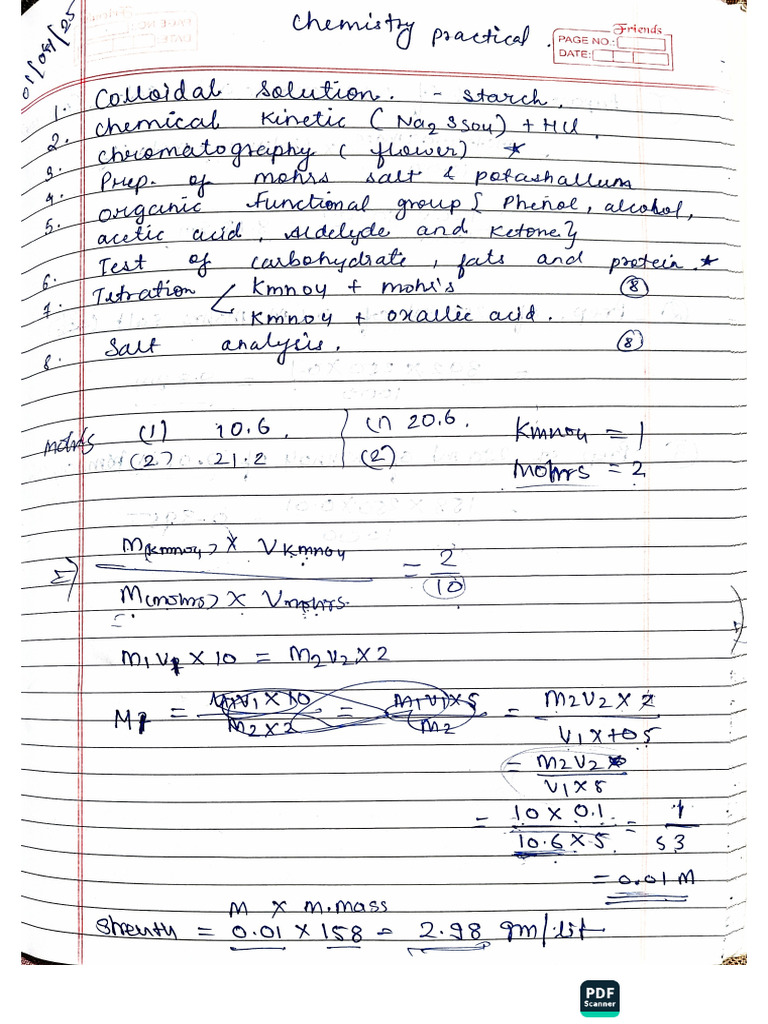 Chemistry practical.
Friends
PAGE NO.:
DATE:
01/04/25
1. Colloidal solution. - starch.
2. chemical kinetic (Na2SSO4) + HCl.
3. chromatography (flower) *
4. Prep. of mohrs salt & potashallum
5. organic functional group { Phenol, alcohol,
acetic acid, Aldelyde and Ketone}
6. Test of carbohydrate, fats and protein. *
7. Tetration < Kmno4 + mohr's (8)
Kmno4 + oxallic acid.
8. Salt analysis. (8)
mohrs (1) 10.6. (1) 20.6. Kmno4 = 1
(2) 21.2 (2) Mohrs = 2
M(kmno4) X V Kmno4 = 2
M(mohrs) X Vmohrs. 10
M1V1 X 10 = M2V2 X 2
M1 = M1V1 X 10 = M1V1 X 5 = M2V2 X 2
M2 X 2 M2 V1 X 10 5
= M2V2
V1 X 5
= 10 X 0.1 = 1
10.6 X 5 53
= 0.01 M
M X M.mass
Strenth = 0.01 X 158 = 2.98 gm/lit
PDF
Scanner